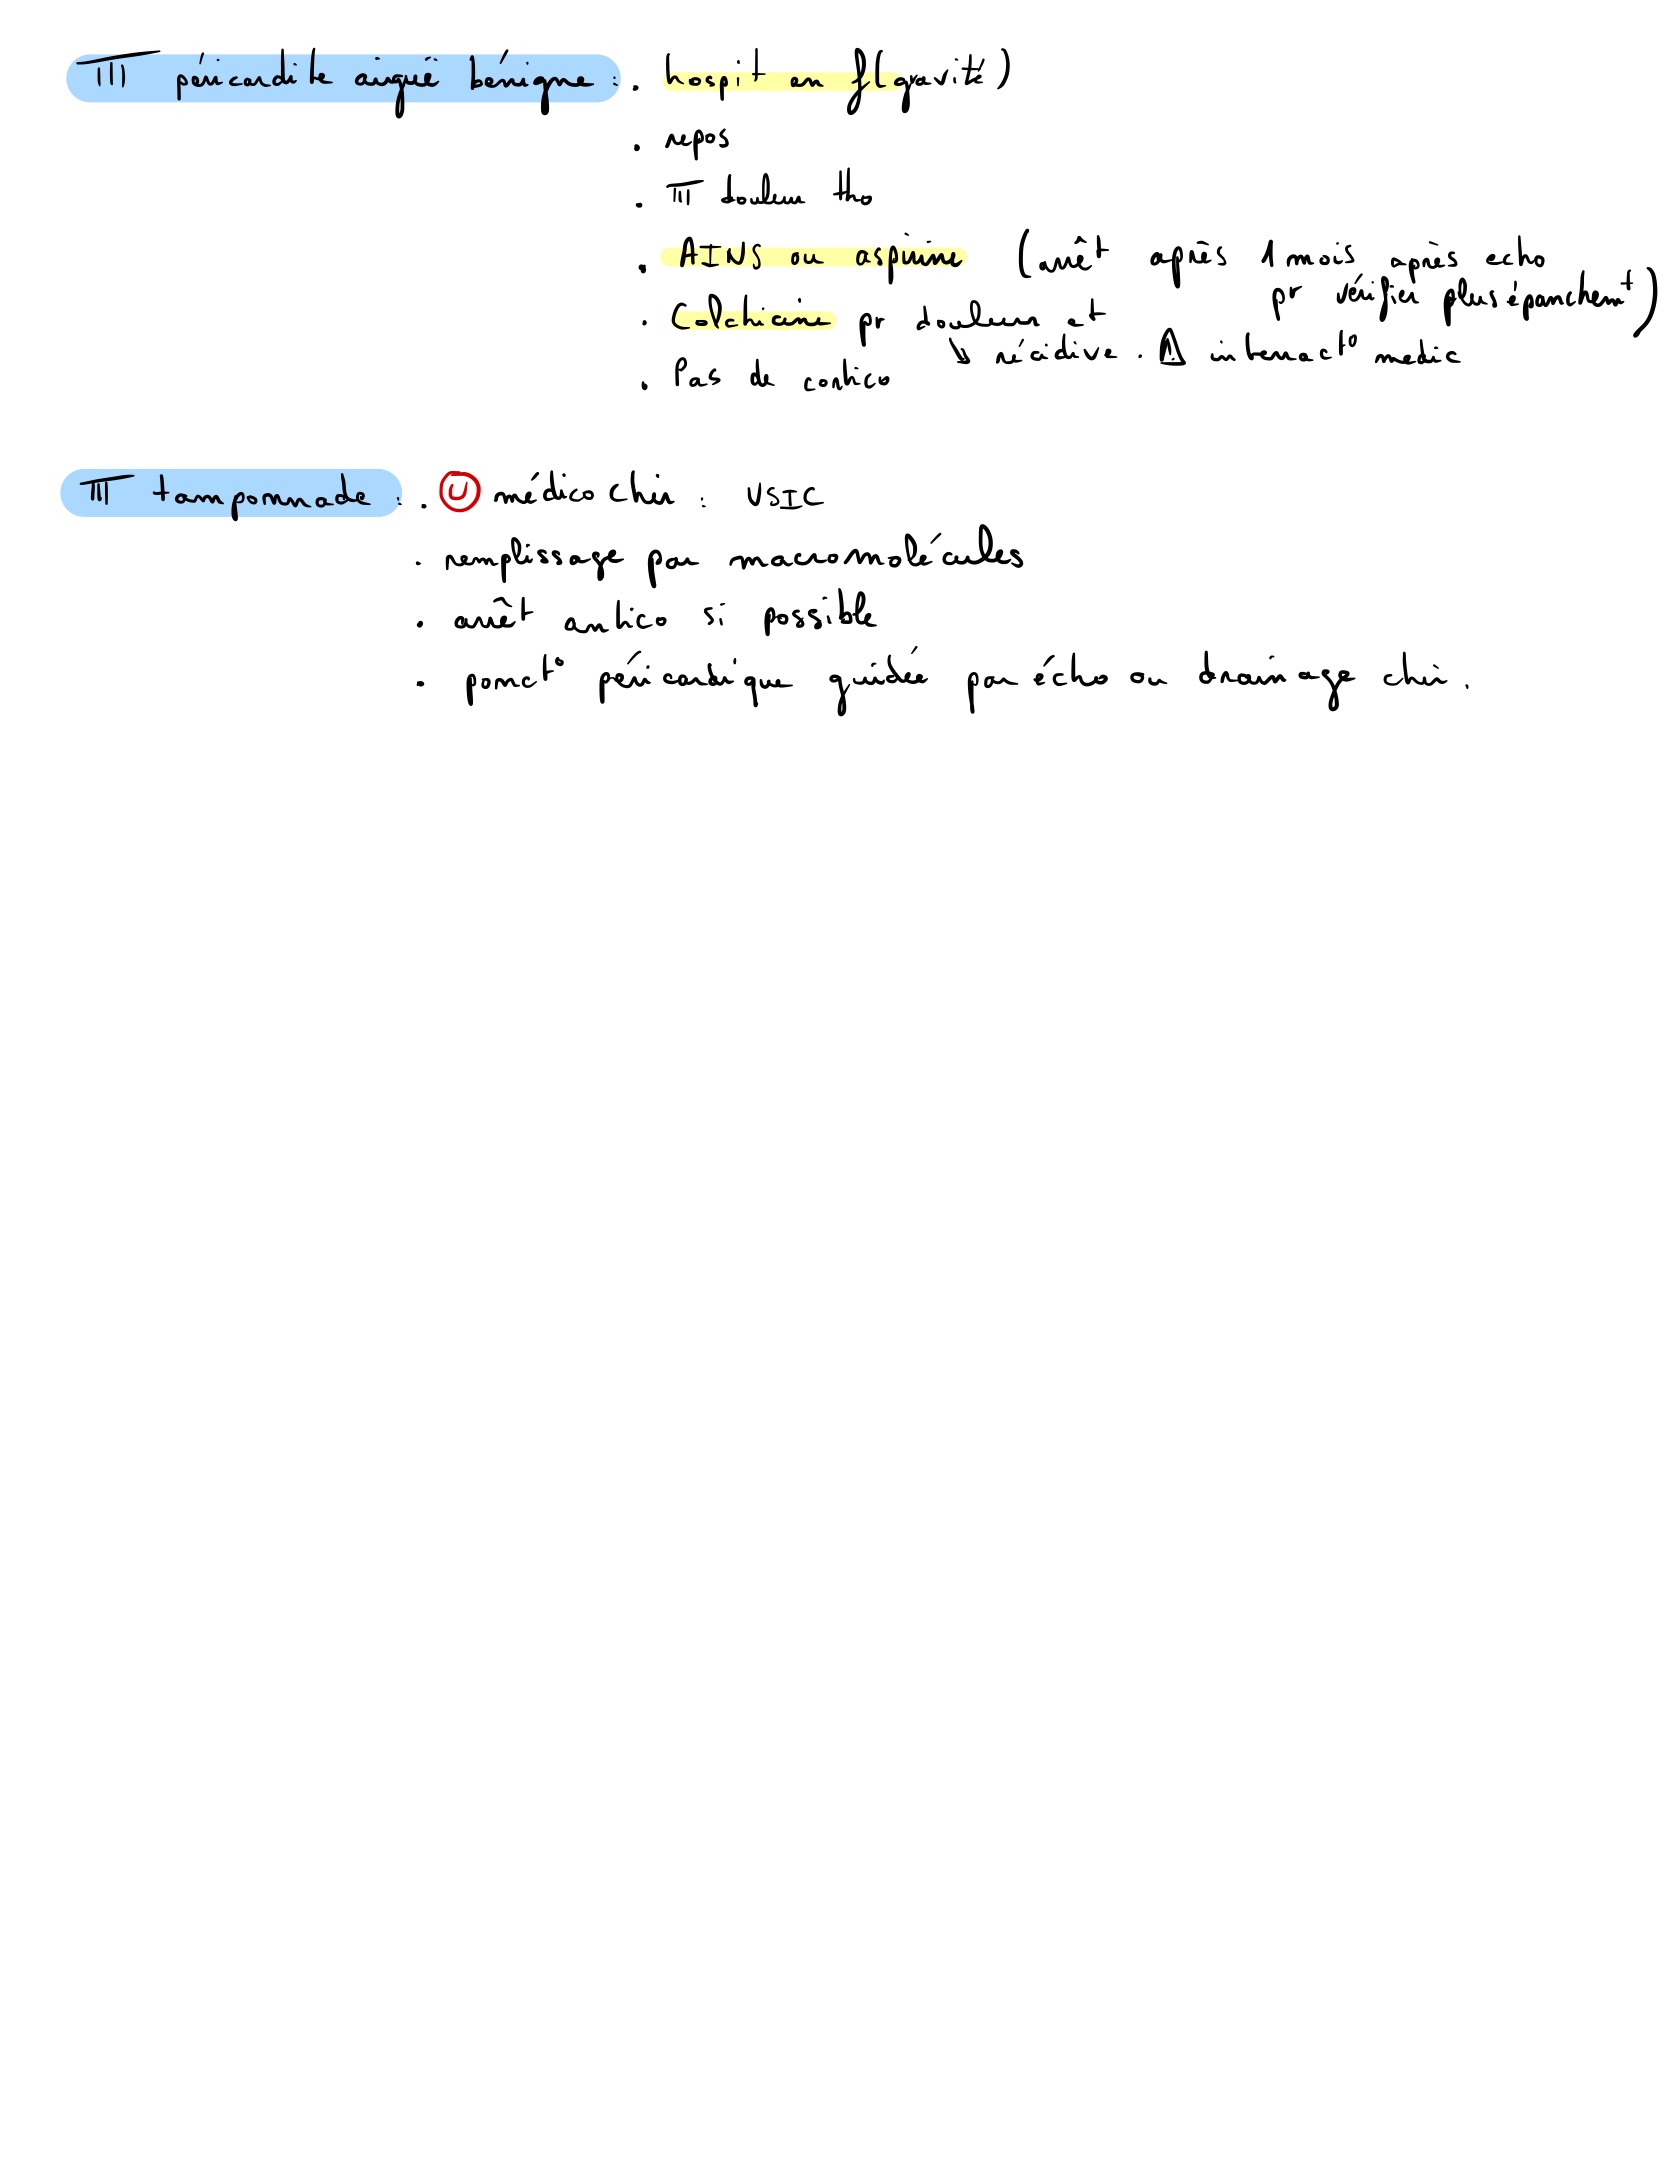 TTT péricardite aigüe bénigne : . hospit en f(gravité)
. repos
. TTT douleur tho
. AINS ou aspirine (arrêt après 1 mois après echo
pr vérifier plus épanchemt)
. Colchicine pr douleur et
↘ récidive . ⚠ interracto medic
. Pas de cortico
TTT tamponnade : . Ⓤ médico chir : USIC
. remplissage par macromolécules
. arrêt antico si possible
. poncto péricardique guidée par écho ou drainage chir.